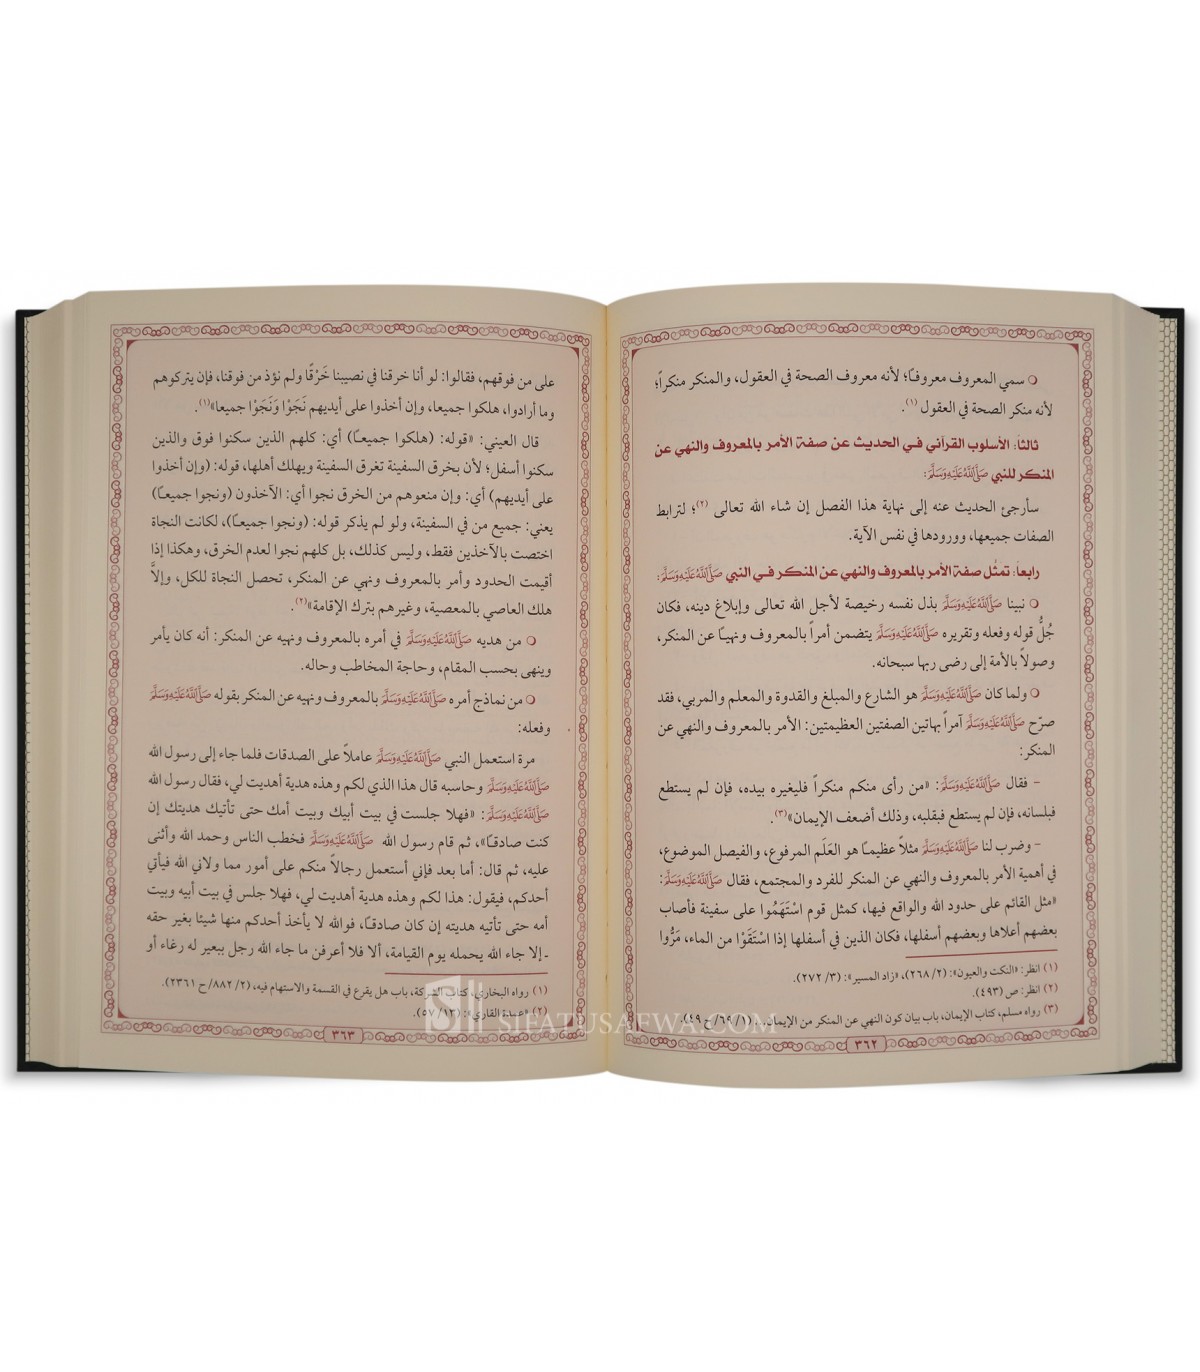 ○ سمي المعروف معروفًا؛ لأنه معروف الصحة في العقول، والمنكر منكراً؛
لأنه منكر الصحة في العقول (١).
ثالثاً: الأسلوب القرآني في الحديث عن صفة الأمر بالمعروف والنهي عن
المنكر للنبي ﷺ:
سأرجئ الحديث عنه إلى نهاية هذا الفصل إن شاء الله تعالى (٢)؛ لترابط
الصفات جميعها، وورودها في نفس الآية.
رابعاً: تمثُّل صفة الأمر بالمعروف والنهي عن المنكر في النبي ﷺ:
○ نبينا ﷺ بذل نفسه رخيصة لأجل الله تعالى وإبلاغ دينه، فكان
جُلُّ قوله وفعله وتقريره ﷺ يتضمن أمراً بالمعروف ونهيًا عن المنكر،
وصولاً بالأمة إلى رضى ربها سبحانه.
○ ولما كان ﷺ هو الشارع والمبلغ والقدوة والمعلم والمربي، فقد
صرّح ﷺ آمراً بهاتين الصفتين العظيمتين: الأمر بالمعروف والنهي عن
المنكر:
- فقال ﷺ: «من رأى منكم منكراً فليغيره بيده، فإن لم يستطع
فبلسانه، فإن لم يستطع فبقلبه، وذلك أضعف الإيمان»(٣).
- وضرب لنا ﷺ مثلاً عظيمًا هو العَلَم المرفوع، والفيصل الموضوع،
في أهمية الأمر بالمعروف والنهي عن المنكر للفرد والمجتمع، فقال ﷺ:
«مثل القائم على حدود الله والواقع فيها، كمثل قوم اسْتَهَمُوا على سفينة فأصاب
بعضهم أعلاها وبعضهم أسفلها، فكان الذين في أسفلها إذا اسْتَقَوْا من الماء، مَرُّوا
(١) انظر: «النكت والعيون»: (٢/ ٢٦٨)، «زاد المسير»: (٣/ ٢٧٢).
(٢) انظر: ص (٤٩٣).
(٣) رواه مسلم، كتاب الإيمان، باب بيان كون النهي عن المنكر من الإيمان... (١/ ٦٩/ ح ٤٩).
٣٦٢
على من فوقهم، فقالوا: لو أنا خرقنا في نصيبنا خَرْقًا ولم نؤذ من فوقنا، فإن يتركوهم
وما أرادوا، هلكوا جميعا، وإن أخذوا على أيديهم نَجَوْا وَنَجَوْا جميعا»(١).
قال العيني: «قوله: (هلكوا جميعًا) أي: كلهم الذين سكنوا فوق والذين
سكنوا أسفل؛ لأن بخرق السفينة تغرق السفينة ويهلك أهلها، قوله: (وإن أخذوا
على أيديهم) أي: وإن منعوهم من الخرق نجوا أي: الآخذون (ونجوا جميعًا)
يعني: جميع من في السفينة، ولو لم يذكر قوله: (ونجوا جميعًا)، لكانت النجاة
اختصت بالآخذين فقط، وليس كذلك، بل كلهم نجوا لعدم الخرق، وهكذا إذا
أقيمت الحدود وأمر بالمعروف ونهي عن المنكر، تحصل النجاة للكل، وإلاَّ
هلك العاصي بالمعصية، وغيرهم بترك الإقامة»(٢).
○ من هديه ﷺ في أمره بالمعروف ونهيه عن المنكر: أنه كان يأمر
وينهى بحسب المقام، وحاجة المخاطب وحاله.
○ من نماذج أمره ﷺ بالمعروف ونهيه عن المنكر بقوله ﷺ
وفعله:
مرة استعمل النبي ﷺ عاملاً على الصدقات فلما جاء إلى رسول الله
ﷺ وحاسبه قال هذا الذي لكم وهذه هدية أهديت لي، فقال رسول الله
ﷺ: «فهلا جلست في بيت أبيك وبيت أمك حتى تأتيك هديتك إن
كنت صادقًا»، ثم قام رسول الله ﷺ فخطب الناس وحمد الله وأثنى
عليه، ثم قال: أما بعد فإني أستعمل رجالاً منكم على أمور مما ولاني الله فيأتي
أحدكم، فيقول: هذا لكم وهذه هدية أهديت لي، فهلا جلس في بيت أبيه وبيت
أمه حتى تأتيه هديته إن كان صادقًا، فوالله لا يأخذ أحدكم منها شيئا بغير حقه
ـ إلا جاء الله يحمله يوم القيامة، ألا فلا أعرفن ما جاء الله رجل ببعير له رغاء أو
(١) رواه البخاري، كتاب الشركة، باب هل يقرع في القسمة والاستهام فيه، (٢/ ٨٨٢/ ح ٢٣٦١).
(٢) «عمدة القاري»: (١٣/ ٥٧).
٣٦٣
SIFATUSAFWA.COM